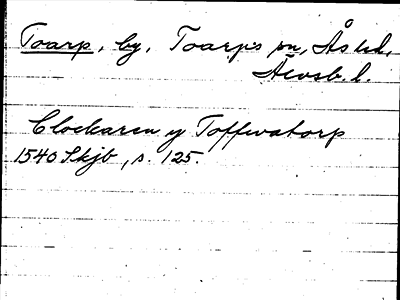 Toarp, by, Toarps sn, Ås hd,
Älvsb. l.
Clockaren y Toffwatorp
1540 Skjb, s. 125.